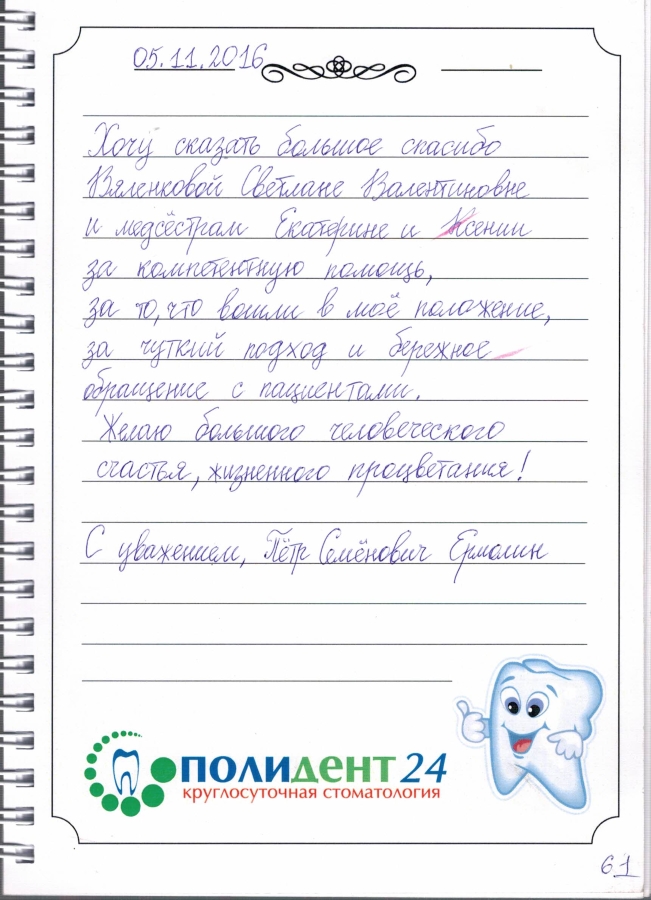 05.11.2016
Хочу сказать большое спасибо
Вяленковой Светлане Валентиновне
и медсёстрам Екатерине и Ксении
за компетентную помощь,
за то, что вошли в моё положение,
за чуткий подход и бережное
обращение с пациентами.
Желаю большого человеческого
счастья, жизненного процветания!
С уважением, Пётр Семёнович Ермолин
ПОЛИДЕНТ 24
круглосуточная стоматология
61